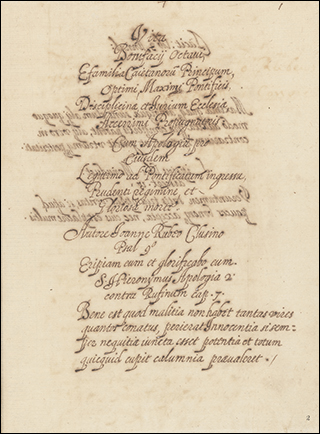 Vita
Bonifacij Octaui,
E familia Caietanorū Principum,
Optimi, Maximi Pontificis.
Disciplinæ et Iurium Ecclesiæ
Acerrimi Propugnatoris
Cum Apologia pro
Eiusdem
Legitimo ad Pontificatum ingressu,
Prudenti regimine et
Gloriosa morte.
Autore Ioanne Rubeo Clusino
Psal 90
Eripiam eum et glorificabo eum
S. Hieronymus Apologia 2a
contra Rufinum cap. 7.
Bene est quod malitia non habet tantas vires
quantos conatus, perierat Innocentia si sem=
per nequitiæ iuncta esset potentia et totum
quicquid cupit calumnia præualeret./
2